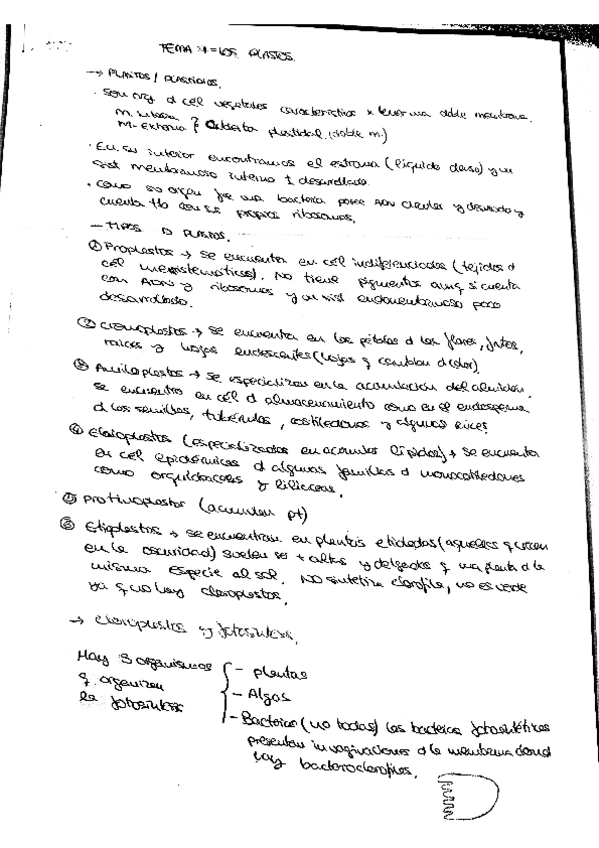 TEMA 7 = LOS PLASTOS.
→ PLASTOS / PLASTIDIOS.
· Son org. d cél vegetales característicos x tener una doble membrana.
M. interna } Cubierta plastidial. (doble m.)
M. Externa
· En su interior encontramos el estroma (líquido denso) y un
sist membranoso interno ± desarrollado.
· Como su origen fue una bacteria posee ADN circular y desnudo y
cuenta tb con sus propios ribosomas.
— TIPOS D PLASTOS.
① Proplastos → se encuentra en cél indiferenciadas (tejidos d
cél meristemáticas). No tiene pigmentos aunq si cuenta
con ADN y ribosomas y un sist endomembranoso poco
desarrollado.
② cromoplastos → se encuentra en los pétalos d las flores, frutos,
raíces y hojas (hojas q cambian d color)
③ Amiloplastos → se especializan en la acumulación del almidón.
se encuentra en cél d almacenamiento como en el endosperma
d las semillas, tubérculos, cotiledones y algunas raíces
④ Elaioplastos (especializados en acumular lípidos) → se encuentra
en cél epidérmicas d algunas familias d monocotiledones
como orquidaceas y liliaceas.
⑤ (acumulan pt)
⑥ Etioplastos → se encuentran en plantas etioladas (aquellas q crecen
en la oscuridad) suelen ser + altas y delgadas q una planta d la
misma especie al sol. No sintetiza clorofila, no es verde
ya q no hay cloroplastos.
→ Cloroplastos y fotosíntesis.
Hay 3 organismos { — plantas
q organizan — Algas
la fotosíntesis — Bacterias (no todas) las bacterias fotosintéticas
presentan invaginaciones d la membrana dond
hay bacterioclorofilas.